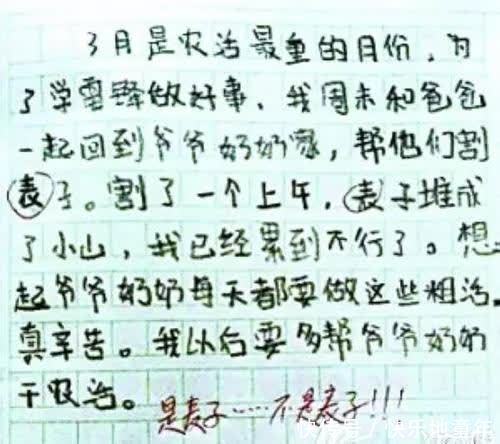 3月是农活最重的月份,为
了学雷锋做好事,我周末和爸爸
一起回到爷爷奶奶家,帮他们割
表子。割了一个上午,表子堆成
了小山,我已经累到不行了。想
起爷爷奶奶每天都要做这些粗活。
真辛苦。我以后要多帮爷爷奶奶
干活。
是麦子……不是表子!!!
快传号/快乐地童年